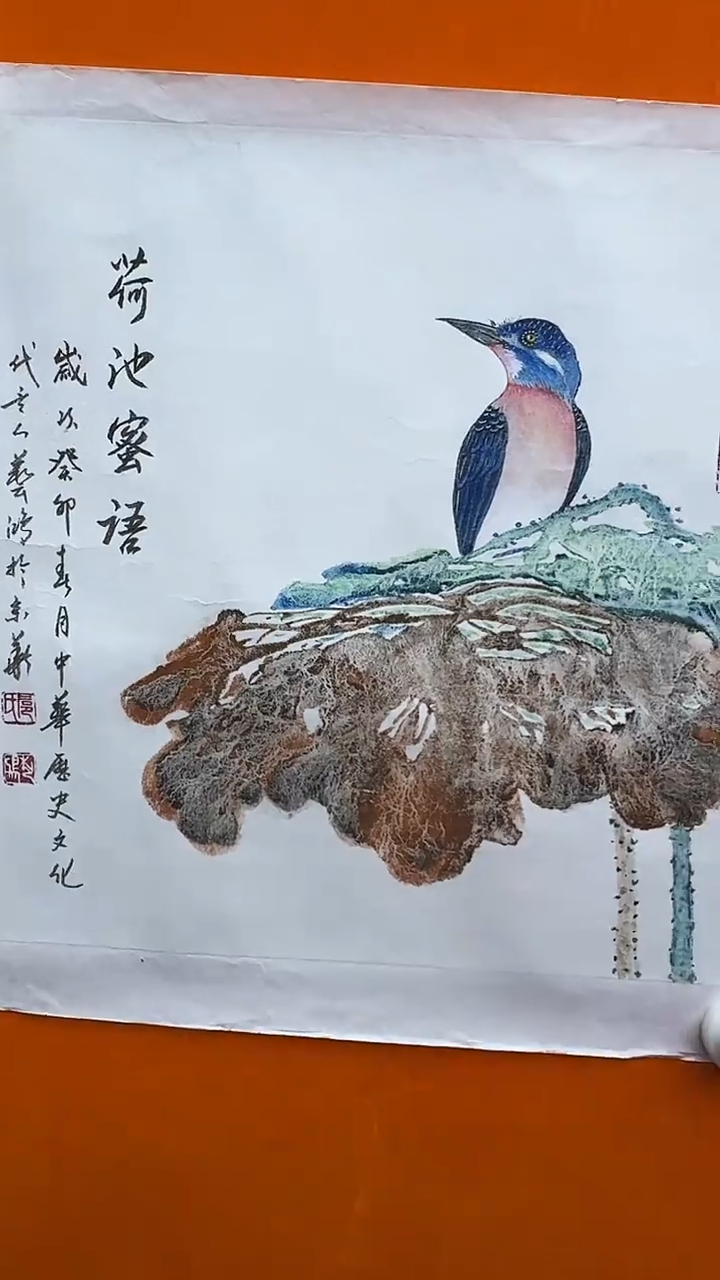 荷池蜜语
岁次癸卯春月中华历史文化
代言人艺鸿于京华